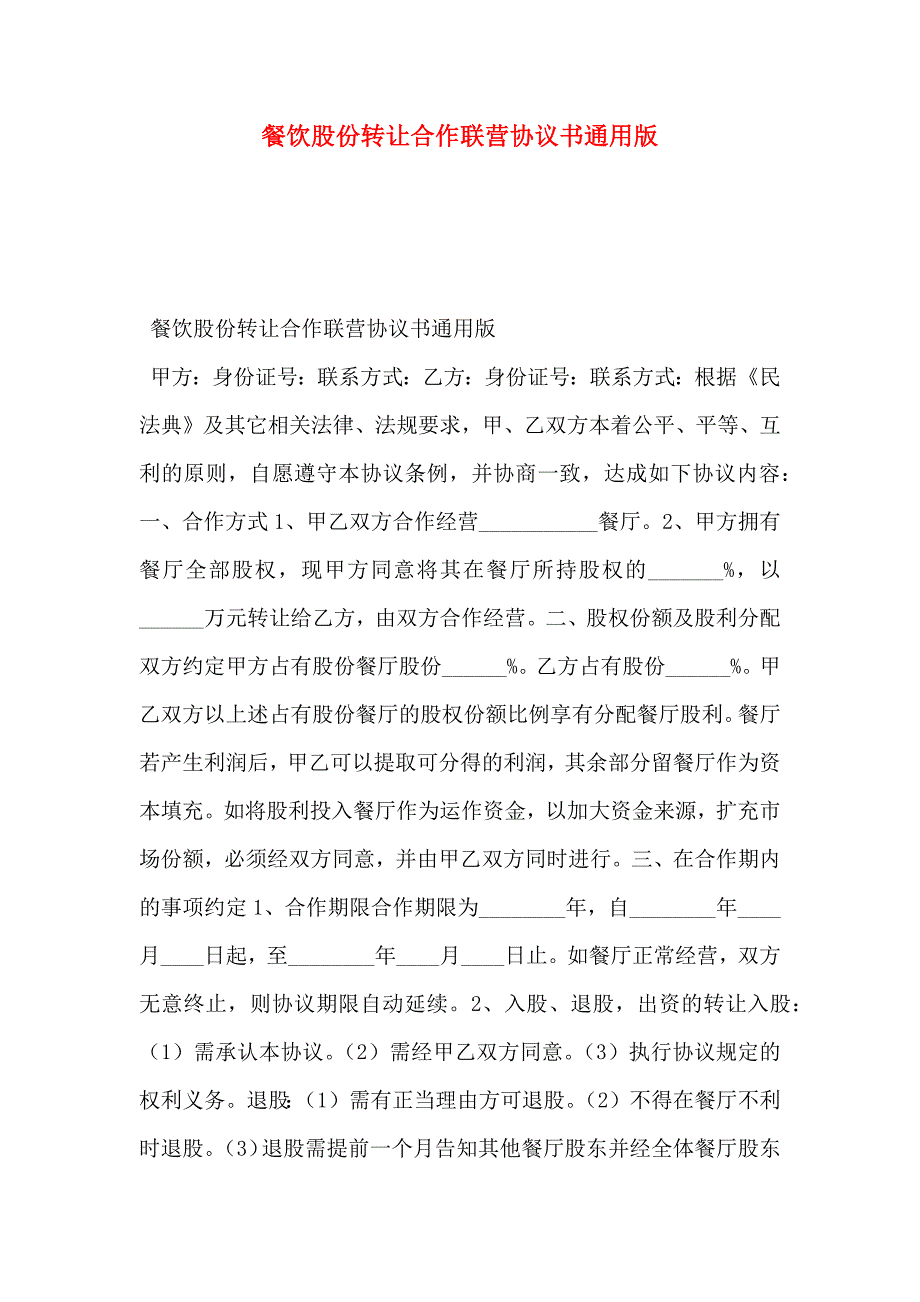 餐饮股份转让合作联营协议书通用版
餐饮股份转让合作联营协议书通用版
甲方：身份证号：联系方式：乙方：身份证号：联系方式：根据《民
法典》及其它相关法律、法规要求，甲、乙双方本着公平、平等、互
利的原则，自愿遵守本协议条例，并协商一致，达成如下协议内容：
一、合作方式1、甲乙双方合作经营___________餐厅。2、甲方拥有
餐厅全部股权，现甲方同意将其在餐厅所持股权的_______%，以
______万元转让给乙方，由双方合作经营。二、股权份额及股利分配
双方约定甲方占有股份餐厅股份______%。乙方占有股份______%。甲
乙双方以上述占有股份餐厅的股权份额比例享有分配餐厅股利。餐厅
若产生利润后，甲乙可以提取可分得的利润，其余部分留餐厅作为资
本填充。如将股利投入餐厅作为运作资金，以加大资金来源，扩充市
场份额，必须经双方同意，并由甲乙双方同时进行。三、在合作期内
的事项约定1、合作期限合作期限为________年，自________年____
月____日起，至________年____月____日止。如餐厅正常经营，双方
无意终止，则协议期限自动延续。2、入股、退股，出资的转让入股：
（1）需承认本协议。（2）需经甲乙双方同意。（3）执行协议规定的
权利义务。退股：（1）需有正当理由方可退股。（2）不得在餐厅不利
时退股。（3）退股需提前一个月告知其他餐厅股东并经全体餐厅股东